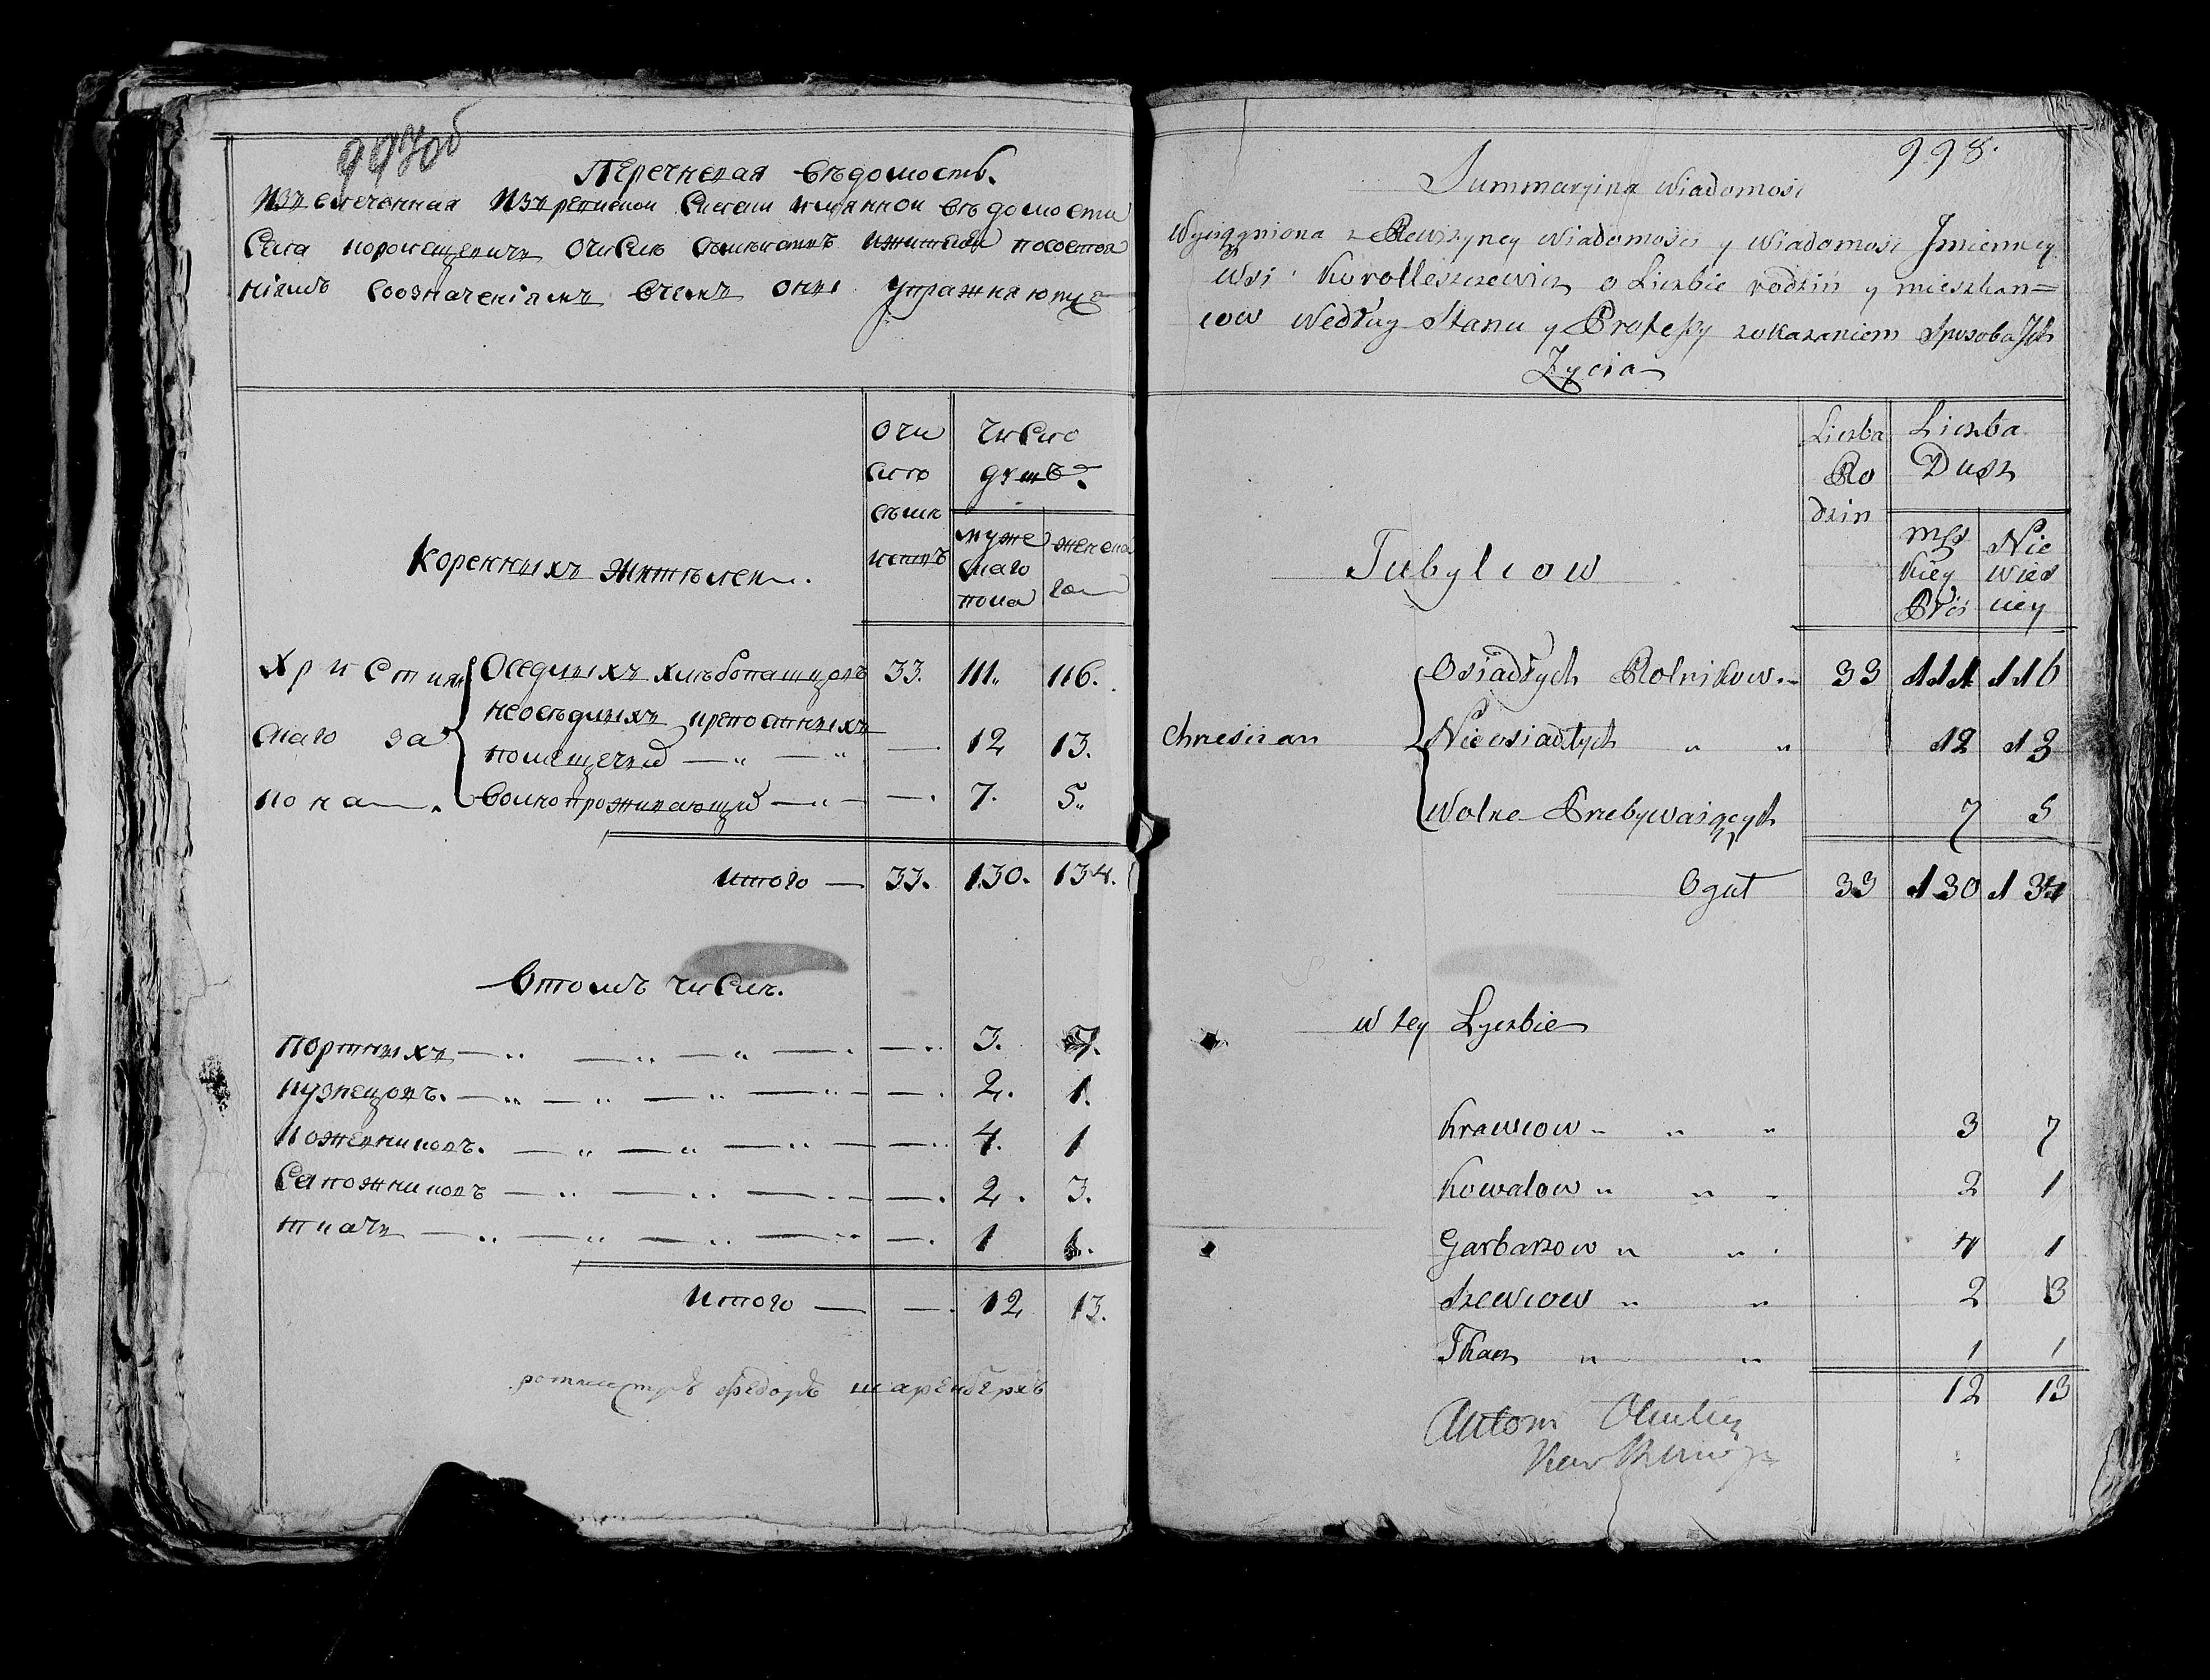 997об
Перечневая вѣдомость.
Извлеченная Изъ ревизской Сказки имянной вѣдомости
Села
о числѣ семействъ и жителей по состоя
ніямъ Собозначеніямъ вчемъ оные упражняются
Коренныхъ Жителей.
О чи
сло
сѣме
иствъ
число
душъ.
муже
скаго
пола
женска
го
Христиан 
скаго за
кона.
Оседлыхъ хлѣбопашцовъ 33. 111. 116.
неосѣдлыхъ крепостныхъ
помещечьи — „ — „ —. 12 13.
волнопроживающій — „ — —. 7. 5„
итого — 33. 130. 134.
Втомъ числѣ.
Портныхъ — „ — „ — „ — . — „ 3. 7.
кузнецовъ. — „ — „ — „ — „ — — . 2. 1.
кожевниковъ. — „ — „ — „ — — „ 4. 1
Сапожниковъ — „ — „ — . — — . 2. 3.
ткачь — „ — „ — „ — „ — . 1 1.
Итого — — . 12 13.
ротмистръ Федоръ
998.
Summaryina Wiadomosc
Wyciągniona z Rewizyney Wiadomosci y Wiadomosi Jmienney
Wsi Korolleszczewicz o Liczbie rodzin y mieszkan=
cow Według Stanu y Professy zokazaniem Sposoba Jch
Zycia
Tubylcow
Liczba
Ro
dzin
Liczba
Dusz
mes
kiey
Płci
Nie
wies
ciey
Chrescian
Osiadłych Rolnikow „ 33 111 116
Nieosiadłych „ „ 12 13
Wolne Przebywaiących 7 5
Ogut 33 130 134
w tey Lyczbie
Krawcow „ „ „ 3 7
Kowalow „ „ „ 2 1
Garbarzow „ „ . 4 1
Szewcow „ „ 2 3
Tkacz „ „ 1 1
12 13
Antoni